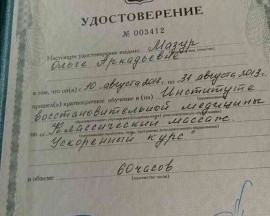 УДОСТОВЕРЕНИЕ
№ 003412
Настоящее удостоверение выдано Мазур
Ольге Аркадьевне
в том, что он(а) с 10 августа 2013 г. по 31 августа 2013 г.
прошел(а) краткосрочное обучение в (на) Институте
восстановительной медицины
по "Классический массаж.
Ускоренный курс"
в объеме 60 часов